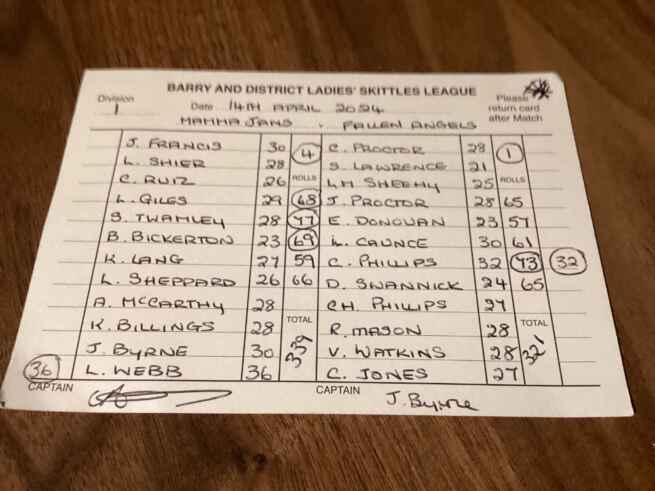 BARRY AND DISTRICT LADIES' SKITTLES LEAGUE
Division 1 Date 14TH APRIL 2024 Please return card after Match
MAMMA JANS . FALLEN ANGELS
J. FRANCIS 30 4 C. PROCTOR 28 1
L. SHIER 28 S. LAWRENCE 21
C. RUIZ 26 ROLLS LM SHEEHY 25 ROLLS
L. GILES 29 68 J. PROCTOR 28 65
S. TWAMLEY 28 77 E. DONOVAN 23 57
B. BICKERTON 23 69 L. CAUNCE 30 61
K. LANG 27 59 C. PHILLIPS 32 73 32
L. SHEPPARD 26 66 D. SWANNICK 24 65
A. MCCARTHY 28 CH. PHILLIPS 27
K. BILLINGS 28 TOTAL R. MASON 28 TOTAL
J. BYRNE 30 339 V. WATKINS 28 321
36 L. WEBB 36 C. JONES 27
CAPTAIN CAPTAIN J. Byrne